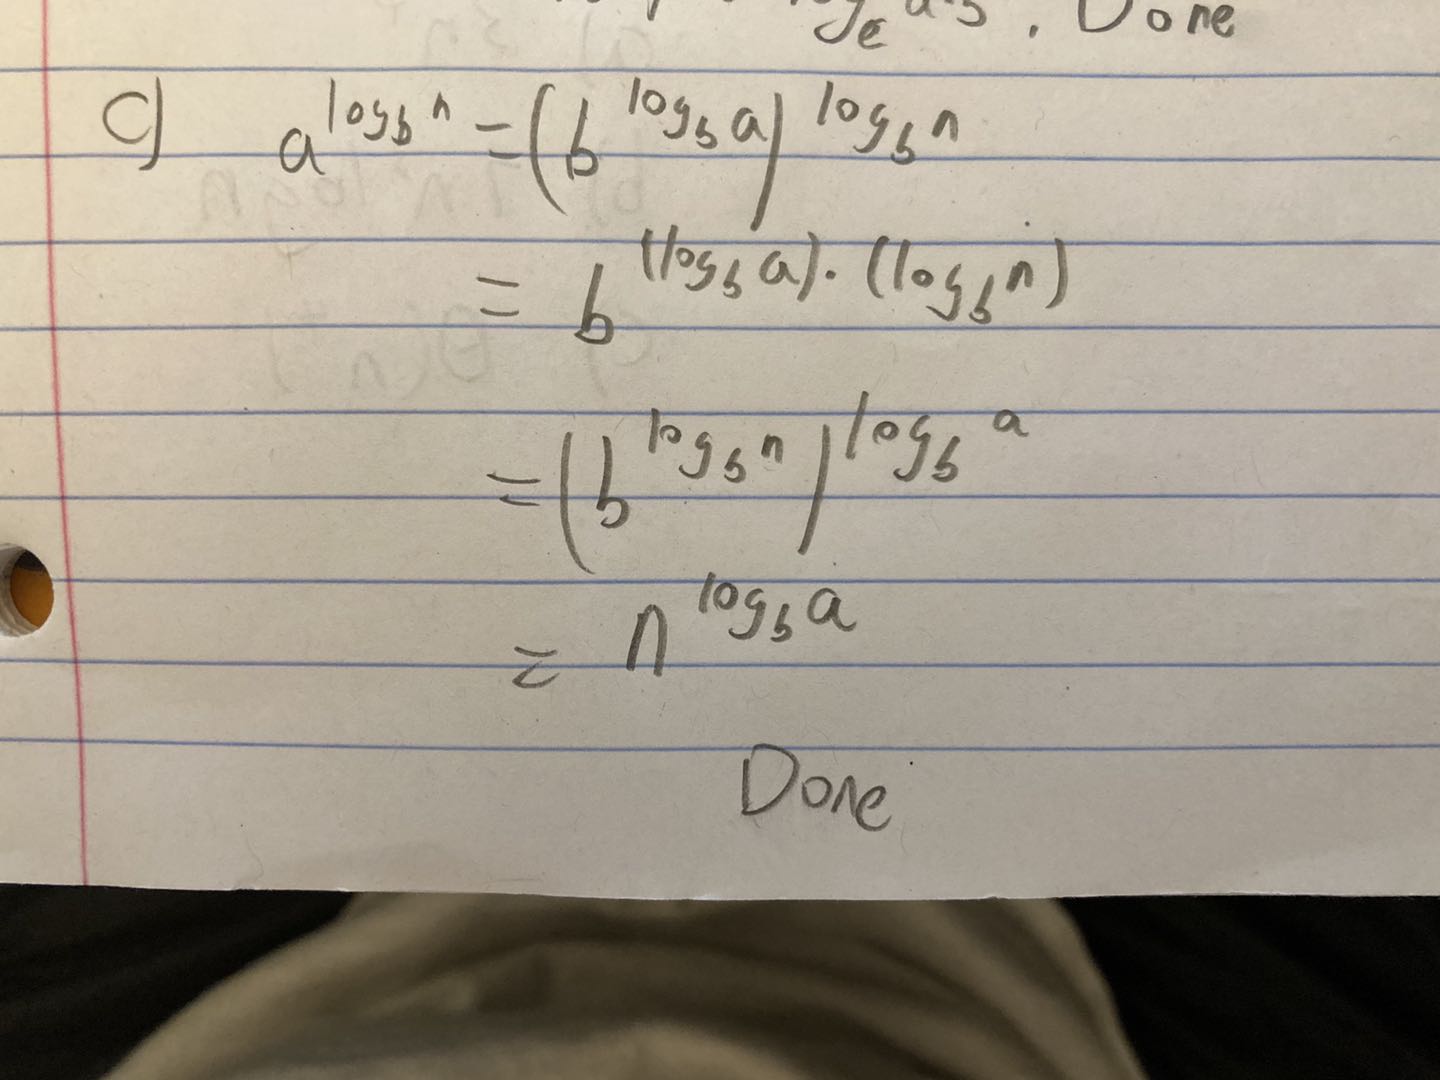 log_e a·b. Done
c) a^{log_b n} = (b^{log_b a})^{log_b n}
= b^{(log_b a)·(log_b n)}
= (b^{log_b n})^{log_b a}
= n^{log_b a}
Done